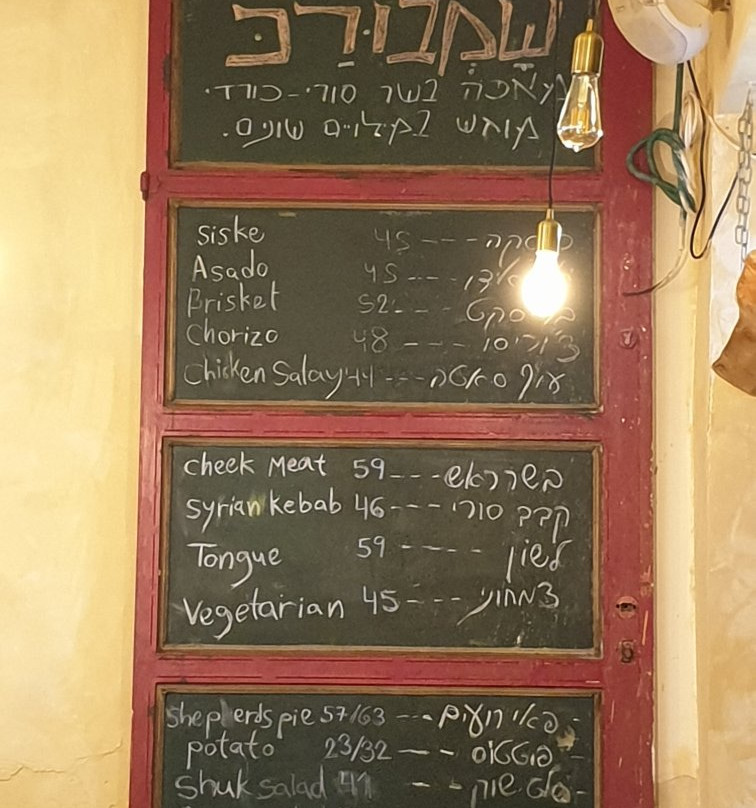 שַמְבוּרַכּ
מאפה בשר סורי-כורדי.
מוגש במילויים שונים.
Siske 45 --- סיסקה
Asado 45 --- אסאדו
Brisket 52 --- בריסקט
Chorizo 48 ---- צ'וריסו
Chicken Salay 44 --- עוף סאטה
cheek Meat 59 --- בשר ראש
Syrian kebab 46 --- קבב סורי
Tongue 59 ----- לשון
Vegetarian 45 ---- צמחוני
Shepherds pie 57/63 --- פאי רועים -
potato 23/32 -- פוטטוס -
Shuk Salad 41 -- סלט שוק -